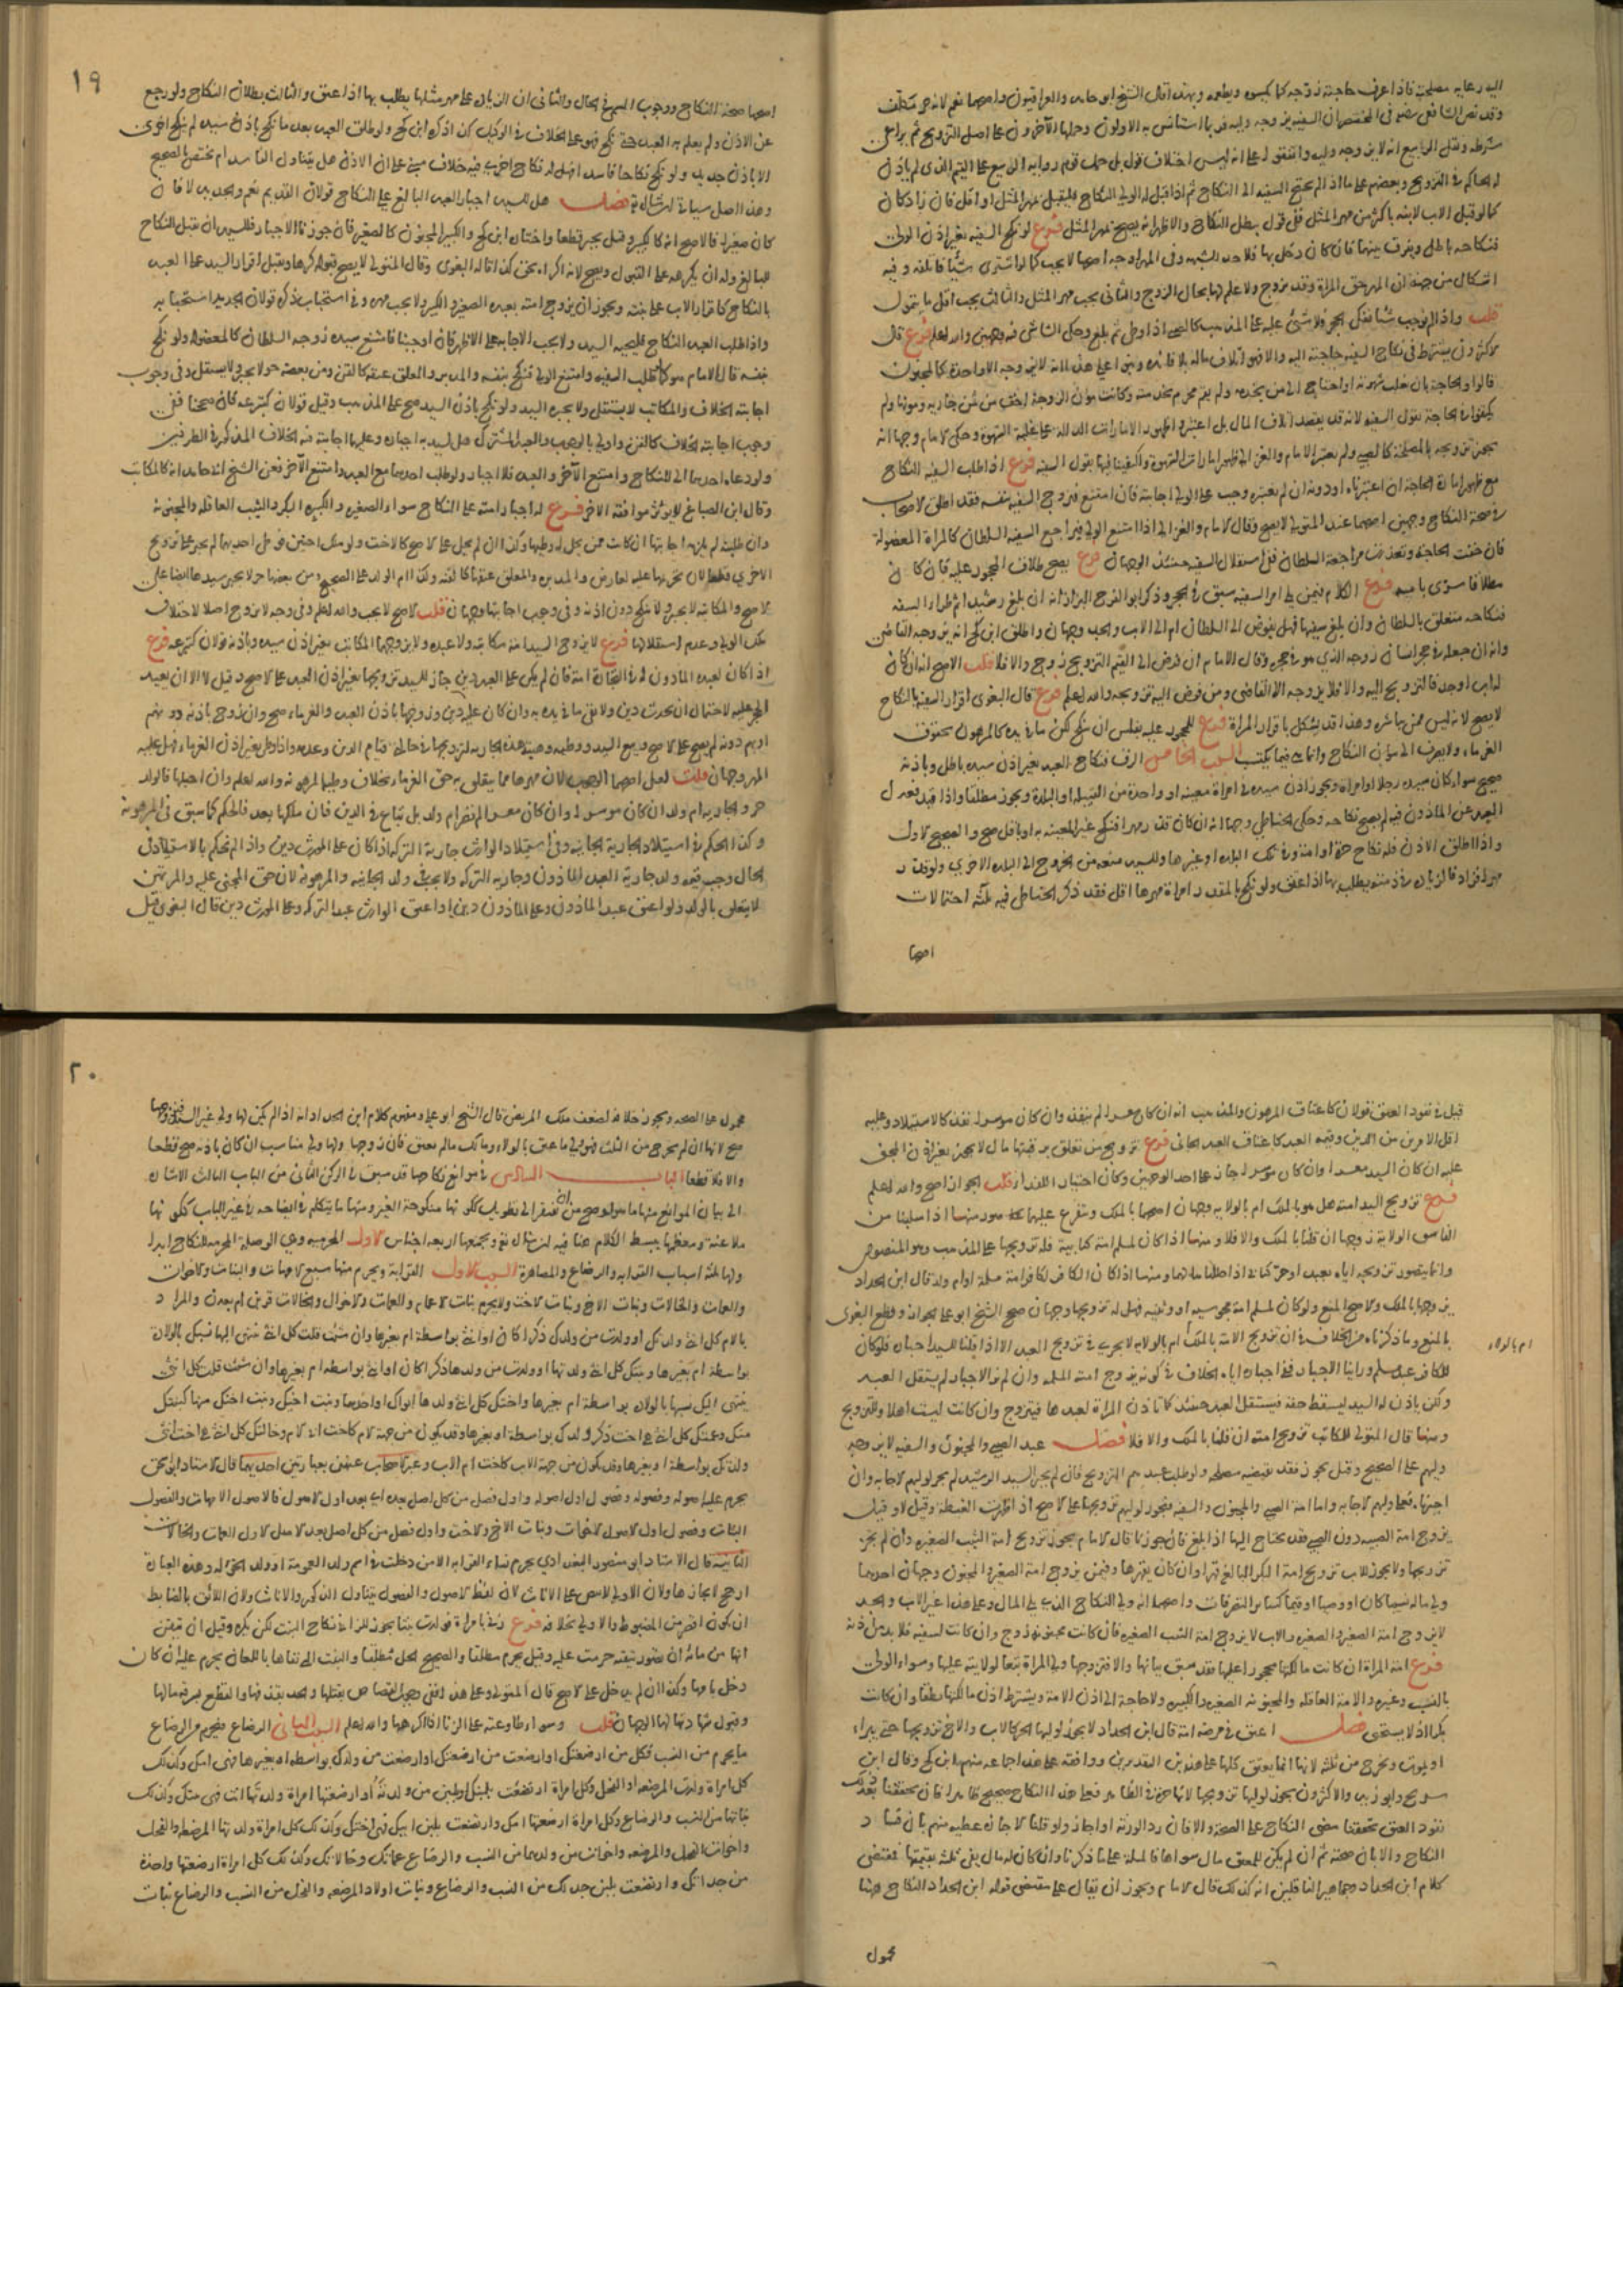 اليه رعاية مصلحته فاذا عرف حاجته زوجه كما يكسوه ويطعمه وبهذا قال الشيخ ابو حامد والعراقيون واصحهما نعم لانه حر مكلف
وقد نص الشافعي في المختصر ان السفيه يزوجه وليه فربما استانس به الاولون وحملها الآخرون على اصل التزويج ثم يراعى
شرطه ونقل الربيع انه لا يزوجه وليه واتفقوا على انه ليس اختلاف قول بل حمل قوم رواية الربيع على القيم الذي لم ياذن
له الحاكم في التزويج وبعضهم على ما اذا لم يحتج السفيه الى النكاح ثم اذا قبل له الولي النكاح فليقبل بمهر المثل او اقل فان زاد كان
كما لو قبل الاب لابنه باكثر من مهر المثل ففي قول يبطل النكاح والاظهر انه يصح بمهر المثل فرع لو نكح السفيه بغير اذن الولي
فنكاحه باطل ويفرق بينهما فان كان دخل بها فلا حد للشبهة وفي المهر اوجه اصحها لا يجب كما لو اشترى شيئا فاتلفه وفيه
اشكال من جهة ان المهر حق المراة وقد تزوج ولا علم لها بحال الزوج والثاني يجب مهر المثل والثالث يجب اقل ما يتمول
قلت واذا لم نوجب شيئا ففك الحجر فلا شيء عليه على المذهب كالصبي اذا وطئ ثم بلغ وحكى الشاشي فيه وجهين والله اعلم فرع قال
الاكثرون يشترط في نكاح السفيه حاجته اليه والا فهو اتلاف ماله بلا فائدة وبنوا على هذا انه لا يزوجه الا واحدة كالمجنون
قالوا والحاجة بان تغلب شهوته او احتاج الى من يخدمه ولم يقم محرم بخدمته وكانت مؤن الزوجة اخف من ثمن جارية ومؤنها ولم
يكتفوا في الحاجة بقول السفيه لانه قد يقصد اتلاف المال بل اعتبروا ظهور الامارات الدالة على غلبة الشهوة وحكى الامام وجها انه
يجوز تزويجه بالمصلحة كالصبي ولم يعتبر الامام والغزالي ظهور امارات الشهوة واكتفيا فيها بقول السفيه فرع اذا طلب السفيه النكاح
مع ظهور امارة الحاجة ان اعتبرناه او دونه ان لم نعتبره وجب على الولي اجابته فان امتنع فتزوج السفيه بنفسه فقد اطلق الاصحاب
في صحة النكاح وجهين اصحهما عند المتولي لا يصح وقال الامام والغزالي اذا امتنع الولي فليراجع السفيه السلطان كالمراة المعضولة
فان خفت الحاجة وتعذرت مراجعة السلطان ففي استقلال السفيه حينئذ الوجهان فرع يصح طلاق المحجور عليه فان كان
مطلاقا سري بامة فرع الكلام فيمن يلي امر السفيه سبق في الحجر وذكر ابو الفرج البزاز انه ان بلغ رشيدا ثم طرا السفه
فنكاحه متعلق بالسلطان وان بلغ سفيها فهل يفوض الى السلطان ام الى الاب والجد وجهان واطلق ابن كج انه يزوجه القاضي
وانه ان جعله في حجر انسان زوجه الذي هو في حجره وقال الامام ان فوض الى القيم التزويج زوج والا فلا قلت الاصح انه ان كان
له اب او جد فالتزويج اليه والا فلا يزوجه الا القاضي ومن فوض اليه تزويجه والله اعلم فرع قال البغوي اقرار السفيه بالنكاح
لا يصح لانه ليس ممن يباشره وهذا قد يشكل باقرار المراة فرع للمحجور عليه بفلس ان ينكح لكن ما في يده كالمرهون بحقوق
الغرماء ولا يصرف الى مؤن النكاح وانما هي فيما يكتسب السبب الخامس الرق فنكاح العبد بغير اذن سيده باطل وباذنه
صحيح سواء كان سيده رجلا او امراة ويجوز اذن سيده في امراة معينة او واحدة من القبيلة او البلدة ويجوز مطلقا واذا قيد فعدل
العبد عن الماذون فيه لم يصح نكاحه وحكى الحناطي وجها انه ان كان قدر مهرا فنكح غير المعينة به او باقل صح والصحيح الاول
واذا اطلق الاذن فله نكاح حرة او امة وفي تلك البلدة او غيرها وللسيد منعه من الخروج الى البلدة الاخرى ولو قدر
مهرا فزاد فالزيادة في ذمته يطلب بها اذا عتق ولو نكح بالمقدر امراة مهرها اقل فقد ذكر الحناطي فيه ثلاثة احتمالات
اصحها
١٩
اصحها صحة النكاح ووجوب المسمى في الحال والثاني ان الزيادة على مهر مثلها يطلب بها اذا عتق والثالث بطلان النكاح ولو رجع
عن الاذن ولم يعلم به العبد حتى نكح فهو على الخلاف في الوكيل كذا ذكره ابن كج ولو طلق العبد بعد ما نكح باذن سيده لم ينكح اخرى
الا باذن جديد ولو نكح نكاحا فاسدا فهل له نكاح اخرى فيه خلاف مبني على ان الاذن هل يتناول الفاسد ام يختص بالصحيح
وهذا الاصل سياتي ان شاء الله فصل هل للسيد اجبار العبد البالغ على النكاح قولان القديم نعم والجديد لا فان
كان صغيرا فالاصح انه كالكبير وقيل يجبر قطعا واختاره ابن كج والكبير المجنون كالصغير فان جوزنا الاجبار فللسيد ان يقبل النكاح
للبالغ وله ان يكرهه على القبول ويصح لانه اكراه بحق كذا قاله البغوي وقال المتولي لا يصح قبوله كرها ويقبل اقرار السيد على العبد
بالنكاح كاقرار الاب على بنته ويجوز ان يزوج امته بعبده الصغير او الكبير ولا يجب مهر وفي استحباب ذكره قولان الجديد استحبابه
واذا طلب العبد النكاح فليجبه السيد ولا يجب الاجابة على الاظهر فان اوجبنا فامتنع سيده زوجه السلطان كالمعضولة ولو نكح
بنفسه قال الامام هو كما لو طلب السفيه وامتنع الولي فنكح بنفسه والمدبر والمعلق عتقه كالقن ومن بعضه حر لا يجبر ولا يستقل وفي وجوب
اجابته الخلاف والمكاتب لا يستقل ولا يجبره السيد ولو نكح باذن السيد صح على المذهب وقيل قولان كتبرعه فان صححنا ففي
وجوب اجابته الخلاف كالقن واولى بالوجوب والعبد المشترك هل لسيديه اجباره وعليهما اجابته فيه الخلاف المذكور في الطرفين
ولو دعاه احدهما الى النكاح وامتنع الآخر والعبد فلا اجبار ولو طلب احدهما مع العبد وامتنع الآخر فعن الشيخ ابي حامد انه كالمكاتب
وقال ابن الصباغ لا يؤثر موافقة الاخر فرع له اجبار امته على النكاح سواء الصغيرة والكبيرة البكر والثيب العاقلة والمجنونة
وان طلبت لم يلزمه اجابتها ان كانت ممن يحل له وطيها وكذا ان لم يحل على الاصح كالاخت ولو ملك اختين فوطئ احديهما لم يجبر على تزويج
الاخرى قطعا لان تحريمها عليه لعارض والمدبرة والمعلق عتقها كالقنة وكذا ام الولد على الصحيح ومن بعضها حر لا يجبر سيدها ايضا على
الاصح والمكاتبة لا يجبر ولا ينكح دون اذنه وفي وجوب اجابتها وجهان قلت الاصح لا يجب والله اعلم وفي وجه لا يزوج اصلا لاختلال
ملك المولى وعدم استقلالها فرع لا يزوج السيد امة مكاتبه ولا عبده ولا يزوجهما المكاتب بغير اذن سيده وباذنه قولان كتبرعه فرع
اذا كان لعبده الماذون له في التجارة امة فان لم يكن على العبد دين جاز للسيد تزويجها بغير اذن العبد على الاصح وقيل لا الا ان يعيد
الحجر عليه لاحتمال ان يحدث دين ولا يفي ما في يده به وان كان عليه دين وزوجها باذن العبد والغرماء صح وان زوج باذنه دونهم
او بهم دونه لم يصح على الاصح وبيع السيد ووطئه وهبته هذه الجارية لتزويجها في حالتي قيام الدين وعدمه واذا وطئ بغير اذن الغرماء فهل عليه
المهر وجهان قلت لعل اصحهما الوجوب لان مهرها مما يتعلق به حق الغرماء بخلاف وطئ المرهونة والله اعلم وان احبلها فالولد
حر والجارية ام ولد ان كان موسرا وان كان معسرا لم تصر ام ولد بل تباع في الدين فان ملكها بعد فالحكم كما سبق في المرهونة
وكذا الحكم في استيلاد الجارية الجانية وفي استيلاد الوارث جارية التركة اذا كان على المورث دين واذا لم نحكم بالاستيلاد في
الحال وجب قيمة ولد جارية العبد الماذون وجارية التركة ولا يجب في ولد الجانية والمرهونة لان حق المجني عليه والمرتهن
لا يتعلق بالولد ولو اعتق عبد الماذون وعلى الماذون دين او اعتق الوارث عبد التركة وعلى المورث دين قال البغوي قيل
قيل في نفوذ العتق قولان كاعتاق المرهون والمذهب انه ان كان معسرا لم ينفذ وان كان موسرا نفذ كالاستيلاد وعليه
اقل الامرين من الدين وقيمة العبد كاعتاق العبد الجاني فرع تزويج من تعلق برقبتها مال لا يجوز بغير اذن المجني
عليه ان كان السيد معسرا وان كان موسرا جاز على احد الوجهين وكان اختيارا للفداء قلت الجواز اصح والله اعلم
فرع تزويج السيد امته هل هو بالملك ام بالولاية وجهان اصحهما بالملك ويتفرع عليهما صور منها اذا سلبنا من
الفاسق الولاية زوجها ان قلنا بالملك والا فلا ومنها اذا كان لمسلم امة كتابية فله تزويجها على المذهب وهو المنصوص
وانما يتصور تزويجه اياها بعبد او حر كتابي اذا حللناها لهما ومنها اذا كان الكافر لكافر امة مسلمة او ام ولد قال ابن الحداد
يزوجها بالملك والاصح المنع ولو كان لمسلم امة مجوسية او وثنية فهل له تزويجها وجهان صحح الشيخ ابو علي الجواز وقطع البغوي
بالمنع وما ذكرناه من الخلاف في ان تزويج الامة بالملك ام بالولاية لا يجري في تزويج العبد الا اذا قلنا للسيد اجباره فلو كان
ام بالولاية
للكافر عبد مسلم وراينا الاجبار ففي اجباره اياه الخلاف في كونه يزوج امته المسلمة وان لم نر الاجبار لم يستقل العبد
ولكن ياذن له السيد ليسقط حقه فيستقل العبد حينئذ كما تاذن المراة لعبدها فيتزوج وان كانت ليست اهلا للتزويج
ومنها قال المتولي للمكاتب تزويج امته ان قلنا بالملك والا فلا فصل عبد الصبي والمجنون والسفيه لا يزوجه
وليهم على الصحيح وقيل يجوز فقد تقتضيه مصلحة ولو طلب عبدهم التزويج فان لم نجبر السيد الرشيد لم نجبر وليهم لاجابته وان
اجبرناه فعلى وليهم الاجابة واما امة الصبي والمجنون والسفيه فيجوز لوليهم تزويجها على الاصح اذا ظهرت الغبطة وقيل لا وقيل
يزوج امة الصبية دون الصبي فقد يحتاج اليها اذا بلغ فان جوزنا قال الامام يجوز تزويج امة الثيب الصغيرة وان لم يجز
تزويجها ولا يجوز للاب تزويج امة البكر البالغ قهرا وان كان يقهرها وفيمن يزوج امة الصغير والمجنون وجهان احدهما
ولي ماله نسيبا كان او وصيا او قيما كسائر التصرفات واصحهما انه ولي النكاح الذي يلي المال وعلى هذا غير الاب والجد
لا يزوج امة الصغير والصغيرة والاب لا يزوج امة الثيب الصغيرة فان كانت مجنونة زوج وان كانت لسفيه فلا بد من اذنه
فرع امة المراة ان كانت مالكتها محجورا عليها فقد سبق بيانها والا فتزوجها ولي المراة تبعا لولايته عليها وسواء الولي
بالنسب وغيره والامة العاقلة والمجنونة الصغيرة والكبيرة ولا حاجة الى اذن الامة ويشترط اذن مالكتها نطقا وان كانت
بكرا اذ لا يستحيى فصل اعتق في مرضه امة قال ابن الحداد لا يجوز لوليها الحر كالاب والاخ تزويجها حتى يبرا
او يموت وتخرج من ثلثه لانها انما يعتق كلها على هذين التقديرين ووافقه على هذا جماعة منهم ابن كج وقال ابن
سريج وابو زيد والاكثرون يجوز لوليها تزويجها لانها حرة في الظاهر فعلى هذا النكاح صحيح ظاهرا فان تحققنا بعد ذلك
نفوذ العتق تحققنا مضي النكاح على الصحة والا فان رد الورثة او اجازوا وقلنا الاجازة عطية منهم بان فساد
النكاح والا بان صحته ثم ان لم يكن للمعتق مال سواها فالمسئلة على ما ذكرنا وان كان له مال يفي ثلثه بقيمتها فمقتضى
كلام ابن الحداد وجماهير الناقلين انه كذلك قال الامام ويجوز ان يقال على مقتضى قول ابن الحداد النكاح هنا
محمول
٢٠
محمول على الصحة ويجوز خلافه لضعف ملك المريض قال الشيخ ابو علي ومفهوم كلام ابن الحداد انه اذا لم يكن لها ولي غير السيد فزوجها
صح لانها ان لم تخرج من الثلث فهو ولي ما عتق بالولاء ومالك ما لم يعتق فان زوجها ولها ولي مناسب ان كان باذنه صح قطعا
والا فلا قطعا الباب السادس في موانع نكاحها قد سبق في الركن الثاني من الباب الثالث الاشارة
الى بيان الموانع منها ما هو اوضح من ان يفتقر الى تطويل ككونها منكوحة الغير ومنها ما يتكلم في ايضاحه في غير الباب ككونها
ملاعنة ومعظمها يبسط الكلام هنا فيه ان شاء الله تعالى ويجمعها اربعة اجناس الاول المحرمية وهي الوصلة المحرمة للنكاح ابدا
ولها ثلاثة اسباب القرابة والرضاع والمصاهرة السبب الاول القرابة ويحرم منها سبع الامهات والبنات والاخوات
والعمات والخالات وبنات الاخ وبنات الاخت ولا يحرم بنات الاعمام والعمات والاخوال والخالات قربن ام بعدن والمراد
بالام كل انثى ولدتك او ولدت من ولدك ذكرا كان او انثى بواسطة ام بغيرها وان شئت قلت كل انثى ينتهي اليها نسبك بالولادة
بواسطة ام بغيرها وبنتك كل انثى ولدتها او ولدت من ولدها ذكرا كان او انثى بواسطة ام بغيرها وان شئت قلت كل انثى
ينتهي اليك نسبها بالولادة بواسطة ام بغيرها واختك كل انثى ولدها ابواك او احدهما وبنت اخيك وبنت اختك منهما كبنتك
منك وعمتك كل انثى هي اخت ذكر ولدك بواسطة او بغيرها وقد يكون من جهة الام كاخت ابي الام وخالتك كل انثى هي اخت انثى
ولدتك بواسطة او بغيرها وقد يكون من جهة الاب كاخت ام الاب وعبر الاصحاب عنهن بعبارتين احديهما قالها الاستاذ ابو اسحق
يحرم عليه اصوله وفصوله وفصول اول اصوله واول فصل من كل اصل بعده اي بعد اول الاصول فالاصول الامهات والفصول
البنات وفصول اول الاصول الاخوات وبنات الاخ والاخت واول فصل من كل اصل بعد الاصل الاول العمات والخالات
الثانية قال الاستاذ ابو منصور البغدادي يحرم نساء القرابة الا من دخلت في اسم ولد العمومة او ولد الخؤولة وهذه العبارة
ارجح لايجازها ولان الاولى لا تنص على الاناث لان لفظ الاصول والفصول يتناول الذكور والاناث ولان اللائق بالضابط
ان يكون اقصر من المضبوط والاولى بخلافه فرع زنى بامراة فولدت بنتا يجوز للزاني نكاح البنت لكن يكره وقيل ان تيقن
انها من مائه ان تصور تيقنه حرمت عليه وقيل يحرم مطلقا والصحيح الحل مطلقا والبنت التي نفاها باللعان يحرم عليه ان كان
دخل بامها وكذا ان لم يدخل على الاصح قال المتولي وعلى هذا ففي وجوب القصاص بقتلها والحد بقذفها والقطع بسرقة مالها
وقبول شهادته لها الوجهان قلت وسواء طاوعته على الزنا او اكرهها والله اعلم السبب الثاني الرضاع فيحرم من الرضاع
ما يحرم من النسب فكل من ارضعتك او ارضعت من ارضعتك او ارضعت من ولدك بواسطة او بغيرها فهي امك وكذلك
كل امراة ولدت المرضعة او الفحل وكل امراة ارتضعت بلبنك او بلبن من ولدته او ارضعتها امراة ولدتها انت فهي بنتك وكذلك
بناتها من النسب والرضاع وكل امراة ارضعتها امك او ارتضعت بلبن ابيك فهي اختك وكذلك كل امراة ولدتها المرضعة والفحل
واخوات الفحل والمرضعة واخوات من ولدهما من النسب والرضاع عماتك وخالاتك وكذلك كل امراة ارضعتها واحدة
من جداتك او ارتضعت بلبن جد لك من النسب والرضاع وبنات اولاد المرضعة والفحل من النسب والرضاع بنات